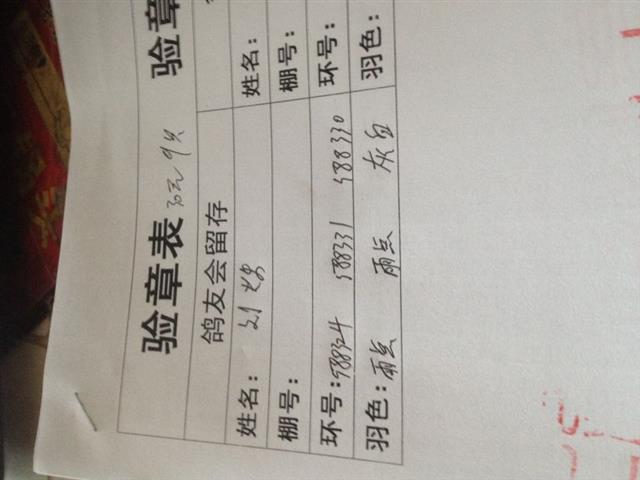 验章表
鸽友会留存
姓名：刘
棚号：
环号：588324 588331 588330
羽色：雨点 雨点 灰白
验章
姓名：
棚号：
环号：
羽色：